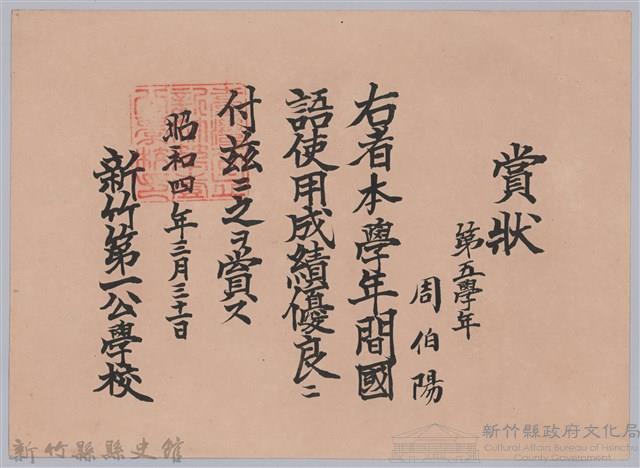 賞狀
第五學年
周伯陽
右者本學年間國
語使用成績優良ニ
付茲ニ之ヲ賞ス
昭和四年三月三十一日
新竹第一公學校
新竹縣縣史館
新竹縣政府文化局
Cultural Affairs Bureau of Hsinchu
County Government